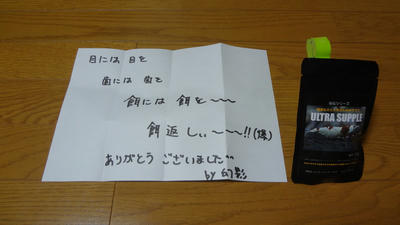 目には 目を
歯には 歯を
餌には 餌を〜〜
餌返しぃ〜〜!!(爆)
ありがとうございました〃
by 幻影
ULTRA SUPPLE